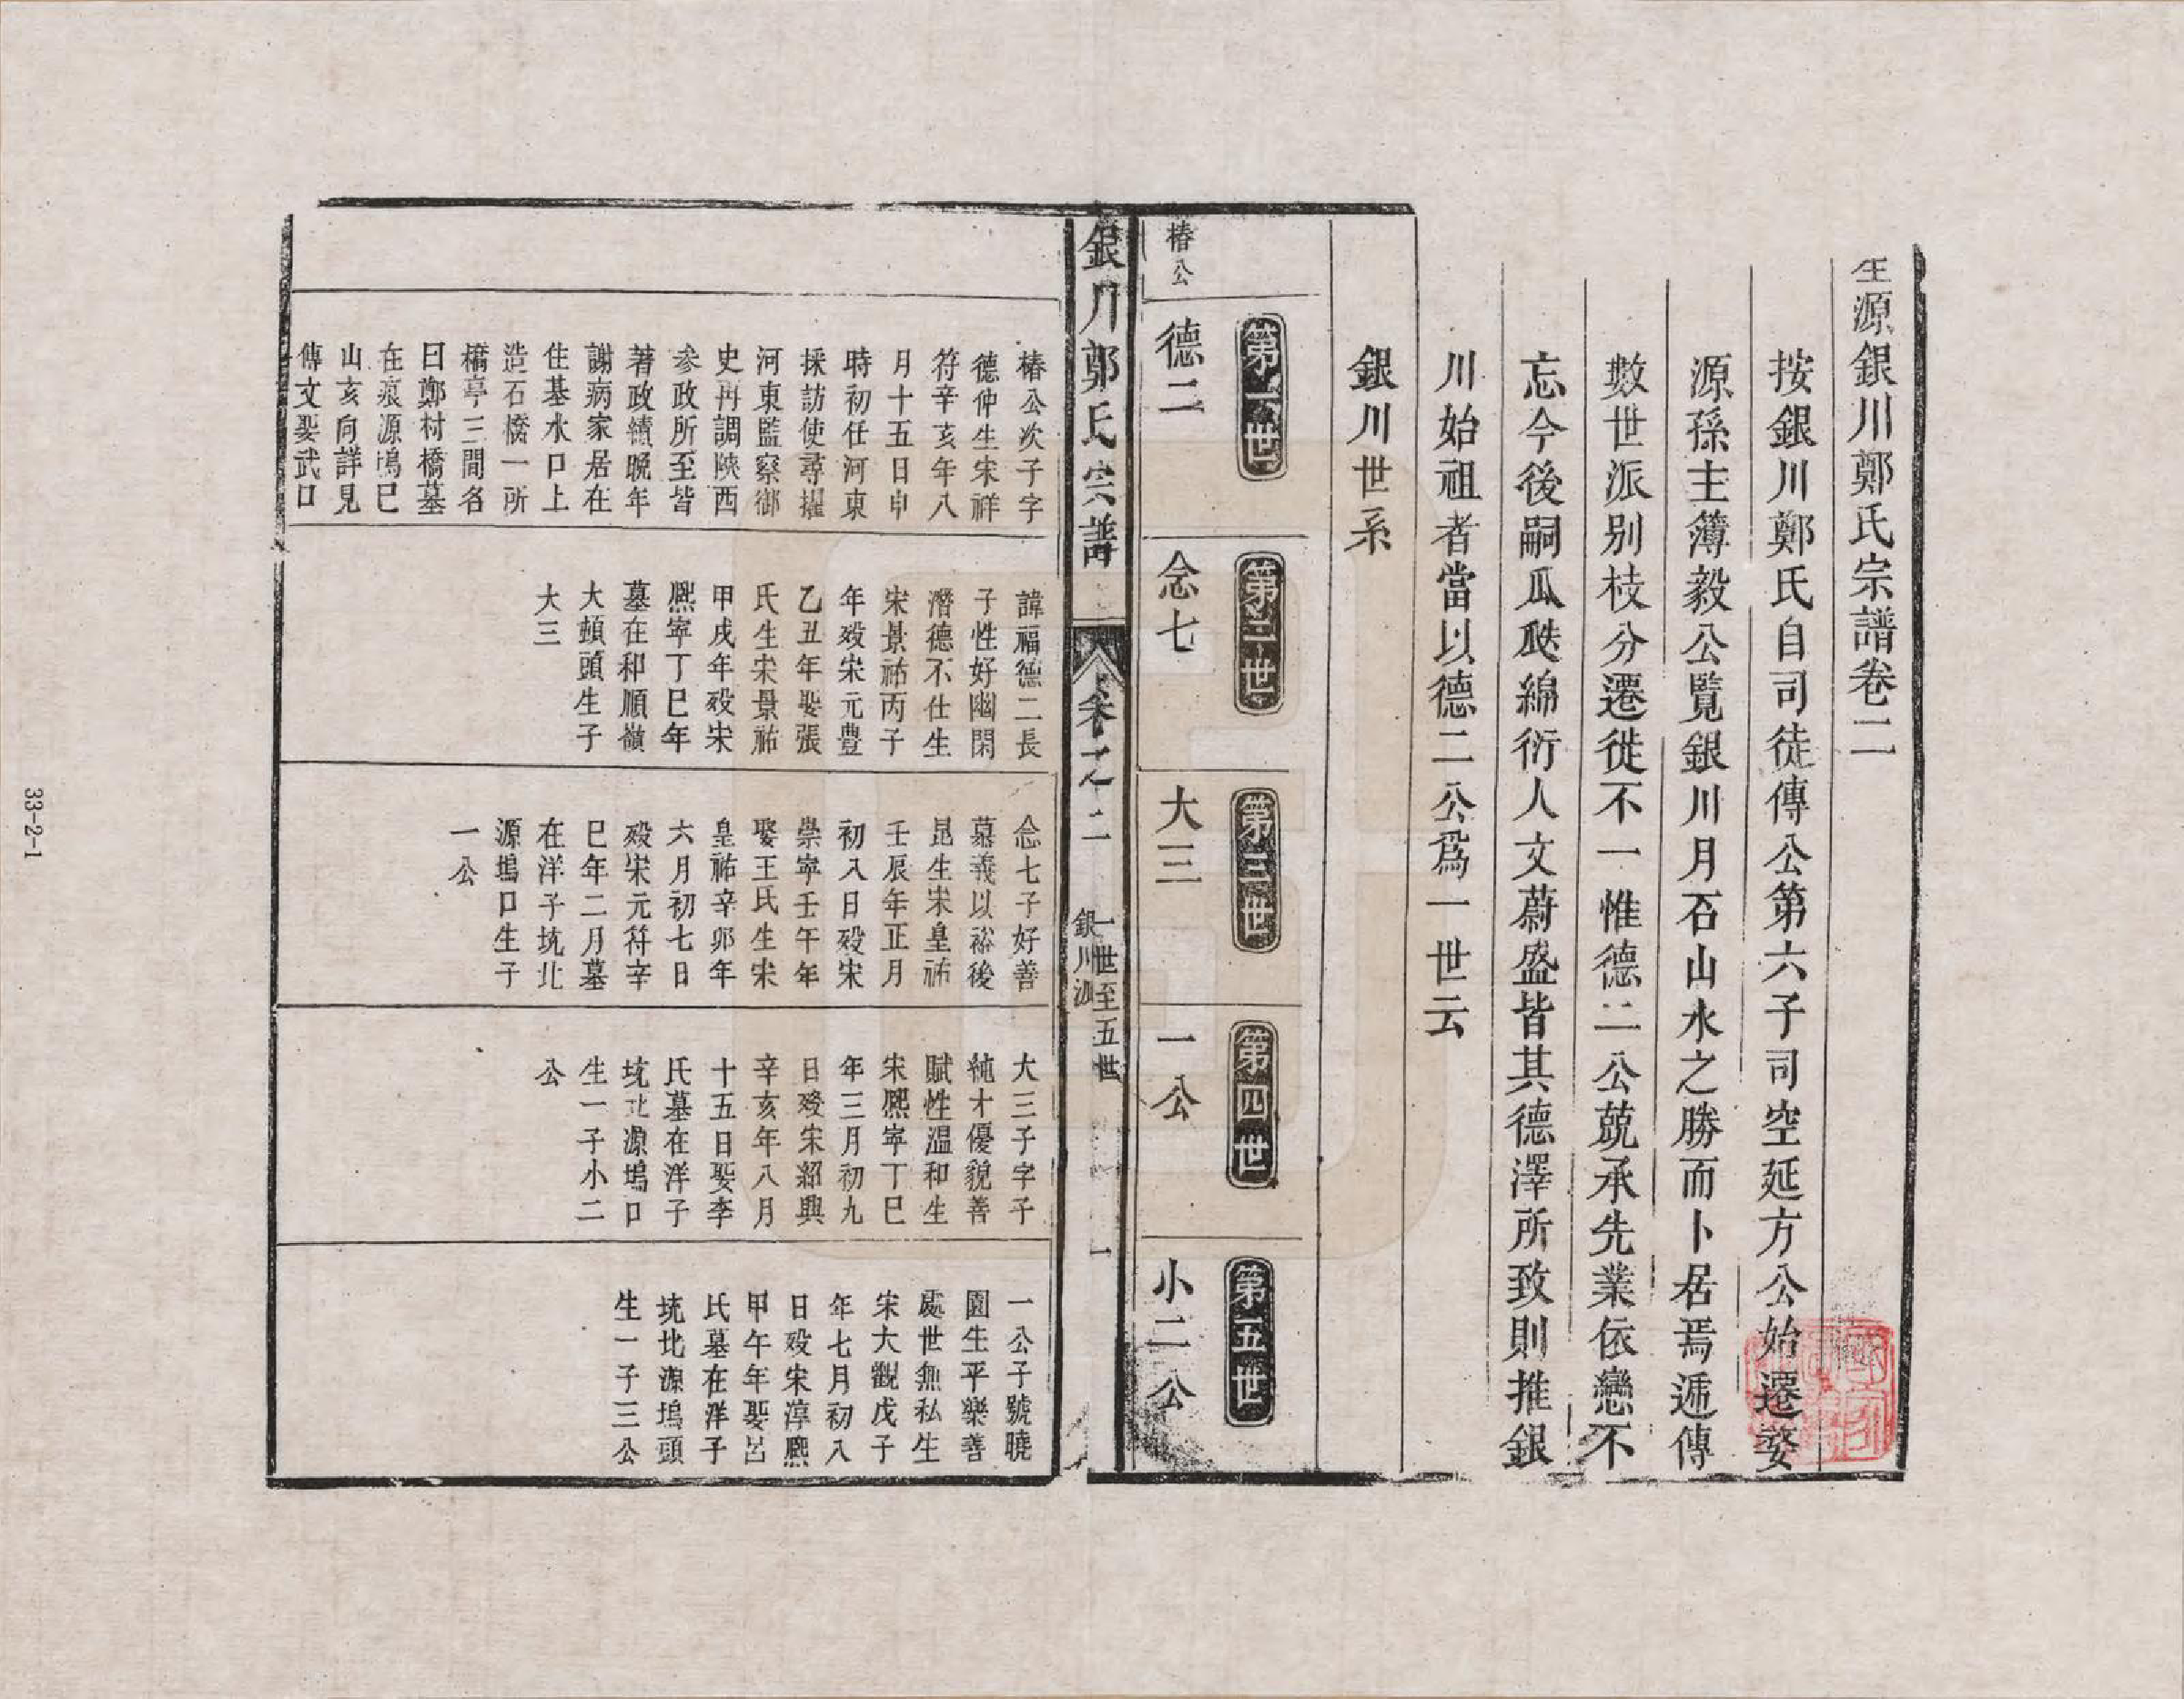 源銀川鄭氏宗譜卷二
按銀川鄭氏自司徒傳公第六子司空延方公始遷婺
源孫主簿毅公覧銀川月石山水之勝而卜居焉遞傳
數世派别枝分遷徙不一惟德二公兢承先業依戀不
忘今後嗣瓜瓞綿衍人文蔚盛皆其德澤所致則推銀
川始祖者當以德二公爲一世云
銀川世系
第一世
第二世
第三世
第四世
第五世
椿公
德二
念七
大三
一公
小二公
銀川鄭氏宗譜
卷之二
一世至五世
銀川派
一
椿公次子字
德仲生宋祥
符辛亥年八
月十五日申
時初任河東
採訪使尋擢
河東監察御
史再調陝西
参政所至皆
著政績晩年
謝病家居在
住基水口上
造石橋一所
橋亭三間名
曰鄭村橋墓
在源塢巳
山亥向詳見
傳文娶武口
諱福德二長
子性好幽閑
潛德不仕生
宋景祐丙子
年殁宋元豊
乙丑年娶張
氏生宋景祐
甲戌年殁宋
熙寜丁巳年
墓在和順嶺
大頭生子
大三
念七子好善
慕義以裕後
昆生宋皇祐
壬辰年正月
初八日殁宋
崇寜壬午年
娶王氏生宋
皇祐辛卯年
六月初七日
殁宋元符辛
巳年二月墓
在洋子坑北
源塢口生子
一公
大三子字子
純才優貌善
賦性温和生
宋熙寜丁巳
年三月初九
日殁宋紹興
辛亥年八月
十五日娶李
氏墓在洋子
坑北源塢口
生一子小二
公
一公子號曉
園生平樂善
處世無私生
宋大觀戊子
年七月初八
日殁宋淳熙
甲午年娶呂
氏墓在洋子
坑北源塢頭
生一子三公
33-2-1